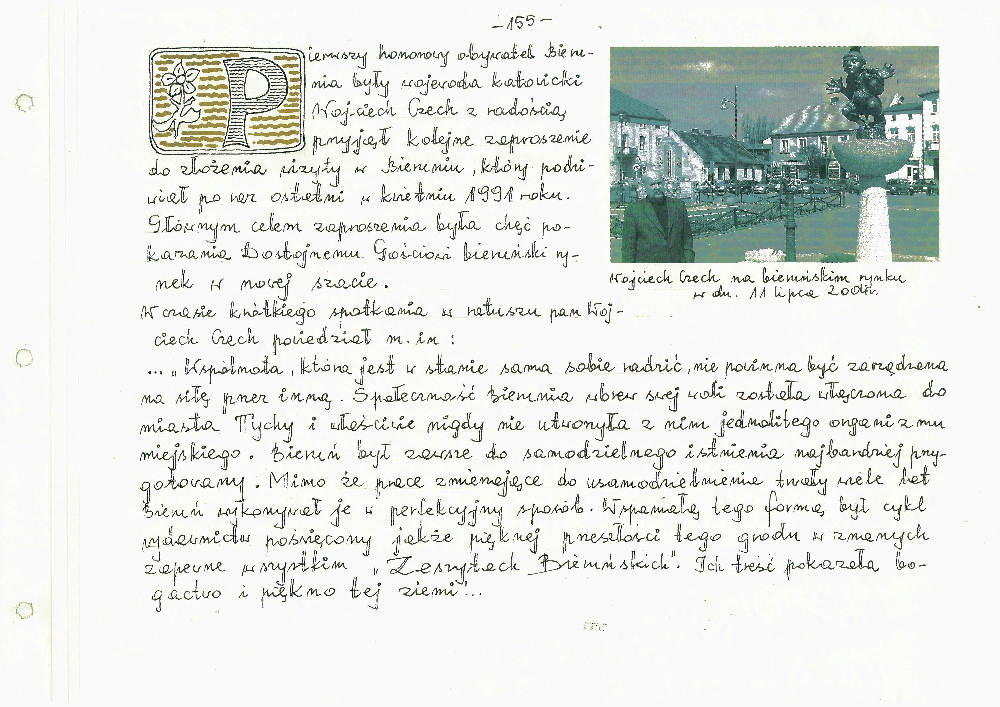 -155-
Pierwszy honorowy obywatel Bieru-
nia były wojewoda katowicki
Wojciech Czech z radością
przyjął kolejne zaproszenie
do złożenia wizyty w Bieruniu, który podzi-
wiał po raz ostatni w kwietniu 1991 roku.
Głównym celem zaproszenia była chęć po-
kazania Dostojnemu Gościowi bieruński ry-
nek w nowej szacie.
W czasie krótkiego spotkania w ratuszu pan Woj-
ciech Czech powiedział m.in:
... „Wspólnota, która jest w stanie sama sobie radzić, nie powinna być zarządzana
na siłę przez inną. Społeczność Bierunia wbrew swej woli została włączona do
miasta Tychy i właściwie nigdy nie utworzyła z nim jednolitego organizmu
miejskiego. Bieruń był zawsze do samodzielnego istnienia najbardziej przy-
gotowany. Mimo że prace zmierzające do usamodzielnienia trwały wiele lat
Bieruń wykonywał je w perfekcyjny sposób. Wspaniałą tego formą był cykl
wydawnictw poświęcony jakże pięknej przeszłości tego grodu w znanych
zapewne wszystkim „Zeszytach Bieruńskich". Ich treść pokazała bo-
gactwo i piękno tej ziemi...
Wojciech Czech na bieruńskim rynku
w dn. 11 lipca 2007r.